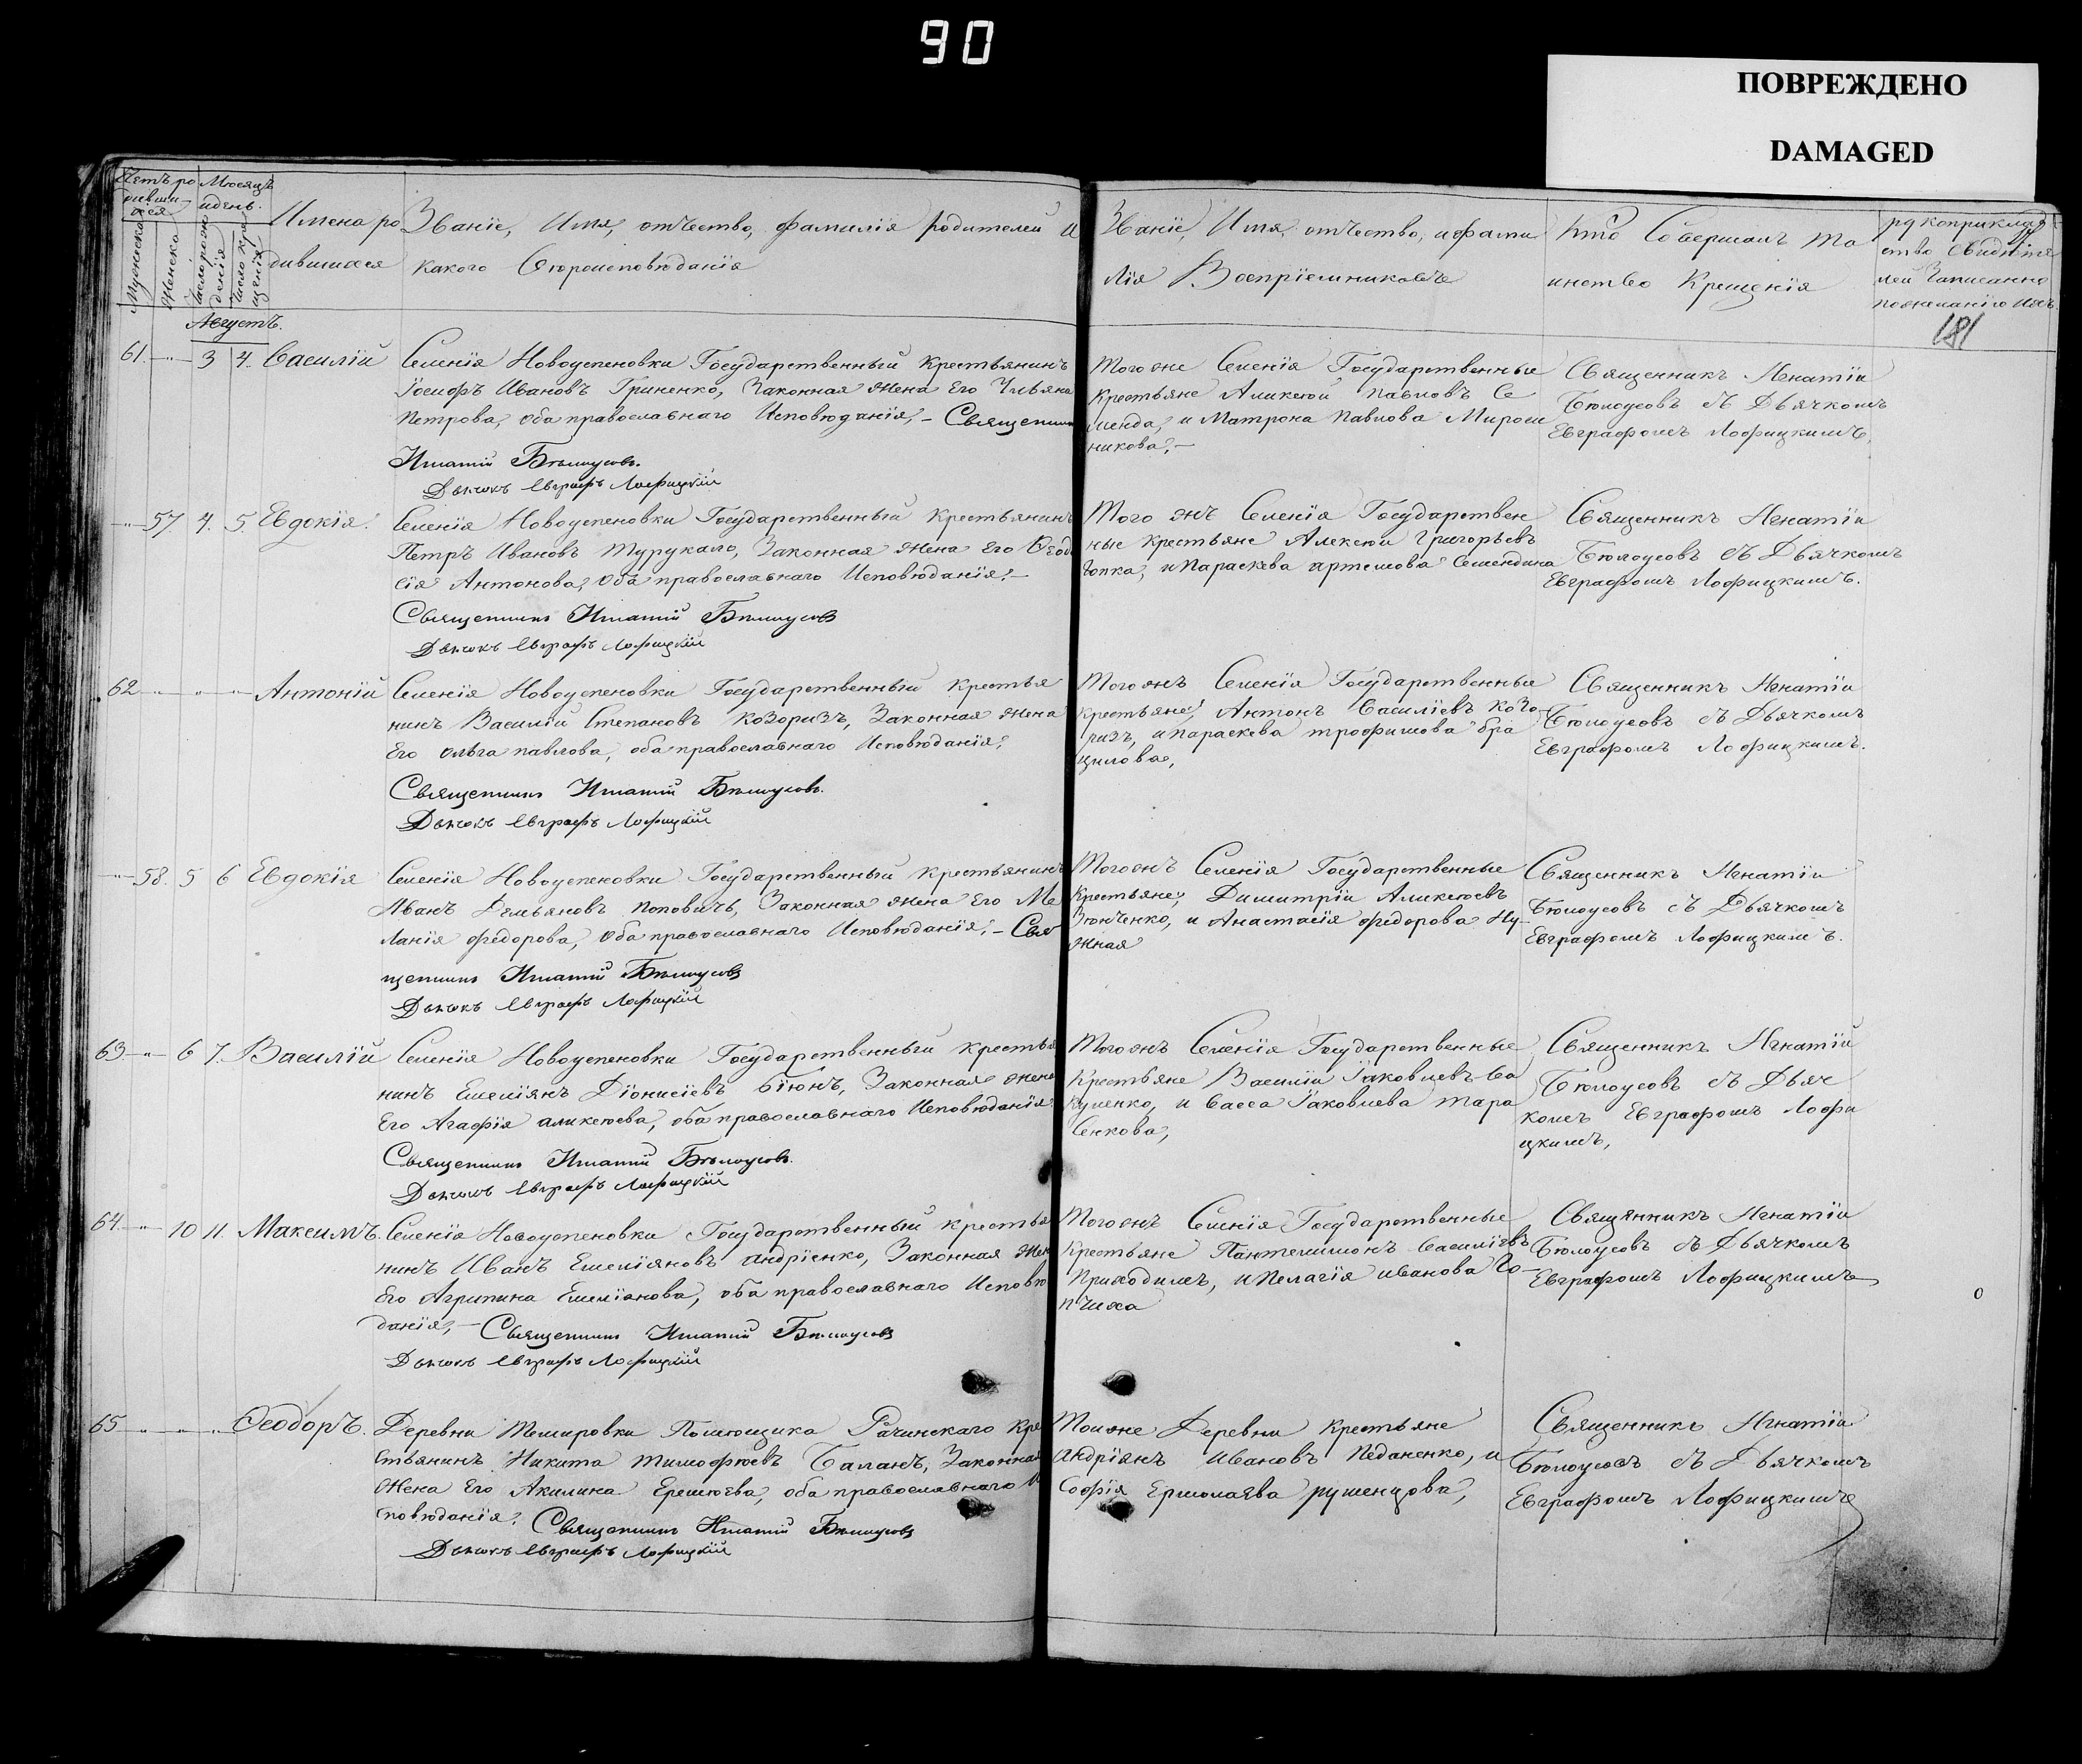 90
ПОВРЕЖДЕНО
DAMAGED
Счетъ ро
дивши-
хся
Мужеска
Женска
Мѣсяцъ
и день.
Число рож
денія
Число кре
щенія
Имена ро
дившихся
Званіе, Имя, отчество, фамилія родителей и
какого Вѣроисповѣданія
Званіе, Имя, отчество, и фами
лія Воспріемниковъ
Кто Совершалъ та
инство Крещенія
рукоприклад
ство Свидѣте
лей Записанно
по желанію ихъ
181
Августъ.
61. 3 4. Василій
Селенія Новоуспеновки Государственный крестьянинъ
Іосифъ Ивановъ Гриненко, Законная жена Его Ульяна
Петрова, оба православнаго Исповѣданія, – Священникъ
Игнатій Бѣлоусовъ.
Дьячокъ Евграфъ Лофицкій
Того же Селенія Государственные
крестьяне Аликсѣй павловъ Се
менда, и Матрона павлова Мирош
никова, –
Священникъ Игнатій
Бѣлоусовъ съ Дьячкомъ
Евграфомъ Лофицкимъ.
57. 4. 5. Евдокія.
Селенія Новоуспеновки Государственный крестьянинъ
Петръ Ивановъ Турукало, Законная жена Его Ѳеодо
сія Антонова, Оба православнаго Исповѣданія, –
Священникъ Игнатій Бѣлоусовъ
Дьячокъ Евграфъ Лофицкій
Того жъ Селенія Государствен
ные крестьяне Алексѣй григорьевъ
, и Параскева артемова Семендина
Священникъ Игнатій
Бѣлоусовъ съ Дьячкомъ
Евграфомъ Лофицкимъ.
62 Антоній
Селенія Новоуспеновки Государственный крестья
нинъ Василій Степановъ козоризъ, Законная жена
Его ольга павлова, оба православнаго Исповѣданія,
Священникъ Игнатій Бѣлоусовъ.
Дьячокъ Евграфъ Лофицкій
Того жъ Селенія Государственные
крестьяне, Антонъ Василіевъ козо
ризъ, и параскева трофимова бра
цилова,
Священникъ Игнатій
Бѣлоусовъ съ Дьячкомъ
Евграфомъ Лофицкимъ.
58. 5 6 Евдокія
Селенія Новоуспеновки Государственный крестьянинъ
Иванъ Демьяновъ поповичъ, Законная жена Его Ме
ланія федорова, Оба православнаго Исповѣданія, – Свя
щенникъ Игнатій Бѣлоусовъ
Дьячокъ Евграфъ Лофицкій
Того жъ Селенія Государственные
крестьяне, Димитрій Аликсѣевъ
Зюнченко, и Анастасія федорова Ну-
жная
Священникъ Игнатій
Бѣлоусовъ съ Дьячкомъ
Евграфомъ Лофицкимъ.
63. 6 7. Василій
Селенія Новоуспеновки Государственный крестья
нинъ Емеліянъ Діонисіевъ , Законная жена
Его Агафія аликсѣева, оба православнаго Исповѣданія
Священникъ Игнатій Бѣлоусовъ.
Дьячокъ Евграфъ Лофицкій
Того жъ Селенія Государственные
крестьяне Василій Іаковлевъ Ва
куленко, и Васса Іаковлева тара
сенкова,
Священникъ Игнатій
Бѣлоусовъ съ Дьяч
комъ Евграфомъ Лофи
цкимъ,
64. 10 11. Максимъ.
Селенія Новоуспеновки Государственный крестья
нинъ Иванъ Емеліяновъ андріенко, Законная жена
Его Агрипина Емеліанова, оба православнаго Исповѣ
данія, – Священникъ Игнатій Бѣлоусовъ
Дьячокъ Евграфъ Лофицкій
Того жъ Селенія Государственные
крестьяне Пантелимонъ Василіевъ
Приходимъ, и Пелагія иванова
Священникъ Игнатій
Бѣлоусовъ съ Дьячкомъ
Евграфомъ Лофицкимъ
65 Ѳеодоръ.
Деревни Темировки Помѣщика Рачинскаго кре
стьянинъ Никита тимофѣевъ Баланъ, Законная
Жена Его Акилина Еремѣева, оба православнаго И
сповѣданія. Священникъ Игнатій Бѣлоусовъ
Дьячокъ Евграфъ Лофицкій
Той же Деревни крестьяне
андріянъ ивановъ Педаненко, и
Софія Ермолаева рушенцова,
Священникъ Игнатій
Бѣлоусовъ съ Дьячкомъ
Евграфомъ Лофицкимъ